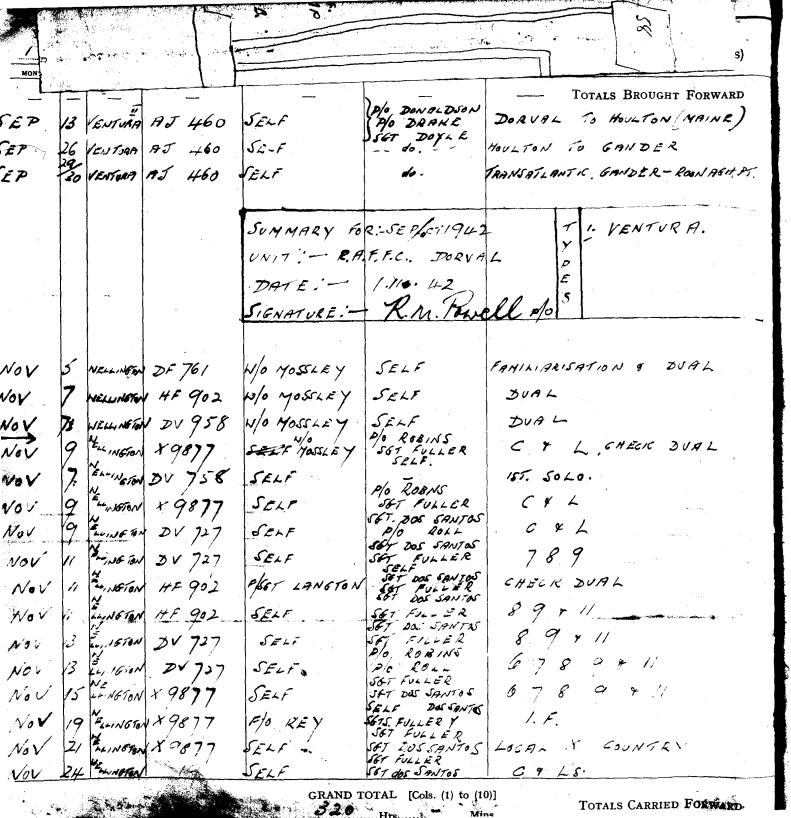 58
s)
MON
TOTALS BROUGHT FORWARD
SEP 13 VENTURA II AJ 460 SELF P/O DONALDSON P/O DRAKE SGT DOYLE DORVAL TO HOULTON (MAINE)
SEP 26 VENTURA AJ 460 SELF -- do. -- HOULTON TO GANDER
SEP 29/30 VENTURA AJ 460 SELF do. TRANSATLANTIC. GANDER - PT.
SUMMARY FOR:- SEP/OCT 1942
UNIT:- R.A.F.F.C. DORVAL
DATE:- 1.11.42
SIGNATURE:- R.M. Powell P/O
TYPES
1- VENTURA.
NOV 5 WELLINGTON DF 761 W/O MOSSLEY SELF FAMILIARISATION & DUAL
NOV 7 WELLINGTON HF 902 W/O MOSSLEY SELF DUAL
NOV WELLINGTON DV 958 W/O MOSSLEY SELF DUAL
NOV 9 WELLINGTON X9877 W/O MOSSLEY P/O ROBINS SGT FULLER SELF. C & L, CHECK DUAL
NOV 7. WELLINGTON DV 758 SELF — 1ST. SOLO.
NOV 9 WELLINGTON X9877 SELF P/O ROBNS SGT FULLER SGT. DOS SANTOS C & L
NOV 9 WELLINGTON DV 727 SELF P/O ROLL SGT DOS SANTOS C & L
NOV 11 WELLINGTON DV 727 SELF SGT FULLER 7 8 9
NOV 11 WELLINGTON HF 902 F/SGT LANGTON SELF SGT DOS SANTOS SGT FULLER CHECK DUAL
NOV 11 WELLINGTON HF 902 SELF SGT DOS SANTOS SGT FULLER 8 9 & 11
NOV 13 WELLINGTON DV 727 SELF SGT DOS SANTOS SGT FULLER 8 9 & 11
NOV 13 WELLINGTON DV 727 SELF. P/O. ROBINS P/O ROLL 6 7 8 9 & 11
NOV 15 WELLINGTON X9877 SELF SGT FULLER SGT DOS SANTOS 6 7 8 9 & 11
NOV 19 WELLINGTON X9877 F/O REY SELF DOS SANTOS SGTS. FULLER Y I.F.
NOV 21 WELLINGTON X9877 SELF SGT FULLER SGT DOS SANTOS LOCAL X COUNTRY
NOV 24 WELLINGTON SELF SGT FULLER SGT DOS SANTOS C & LS.
GRAND TOTAL [Cols. (1) to (10)]
320 Hrs. — Mins
TOTALS CARRIED FORWARD